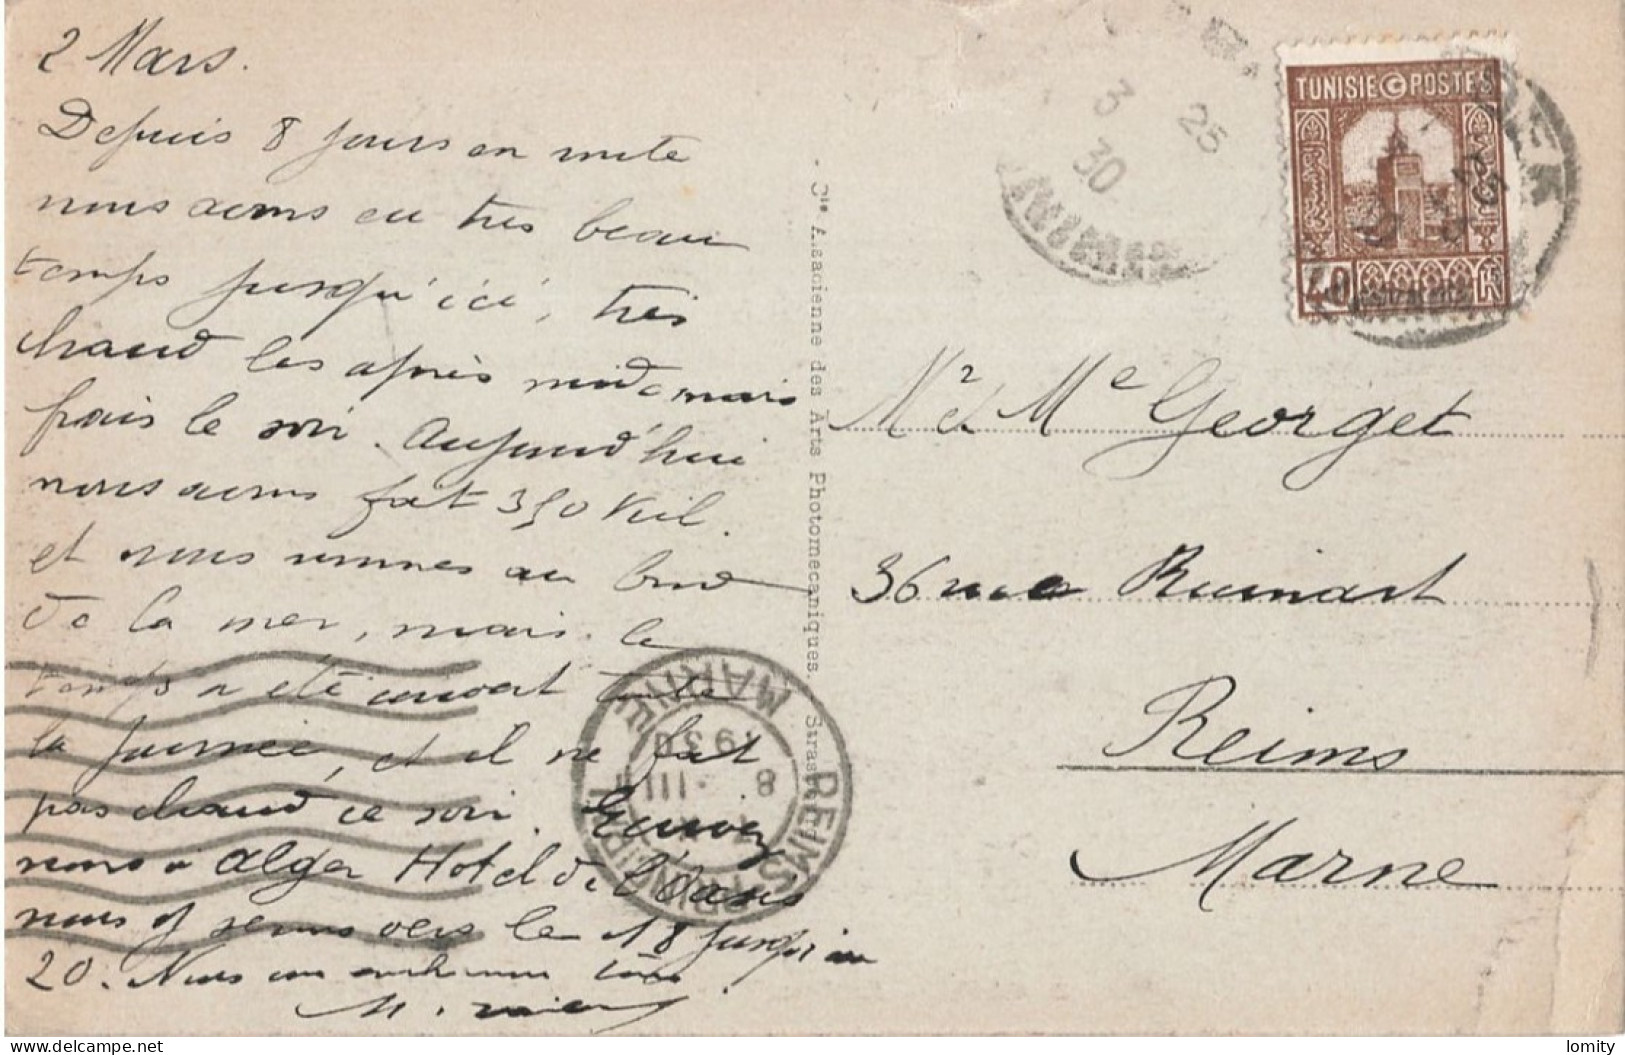 2 Mars.
Depuis 8 jours en route
nous avons eu très beau
temps jusqu'ici, très
chaud les après midi mais
frais le soir. Aujourd'hui
nous avons fait 350 Kil.
et nous sommes au bord
de la mer, mais le
temps a été couvert toute
la journée, et il ne fait
pas chaud ce soir. Ecrivez
nous à Alger Hotel de l'Oasis
nous y serons vers le 18 jusqu'au
20. Nous vous embrassons tous
M.
Cie Alsacienne des Arts Photomécaniques, Strasbourg
TUNISIE POSTES
40
25
3
30
Mr et Me Georget
36 rue Ruinart
Reims
Marne
REIMS
MARNE
8 III
1930
delcampe.net
lomity